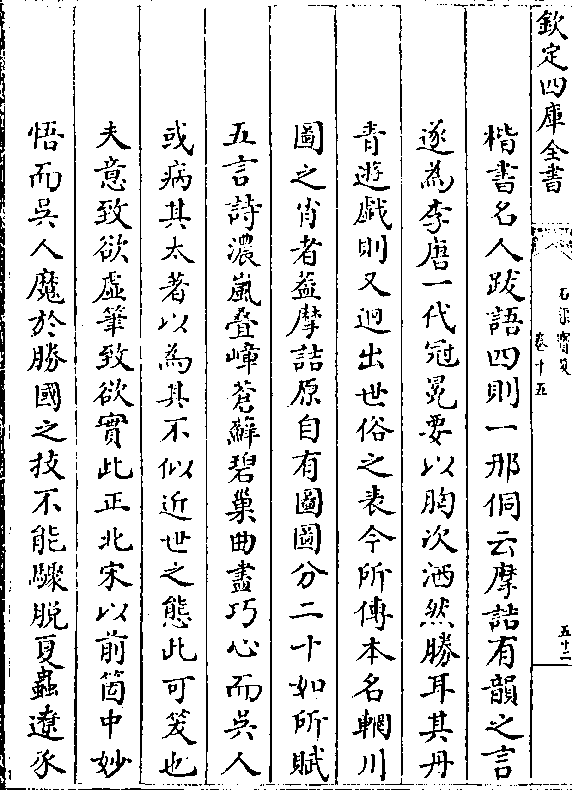 欽定四庫全書
石渠寶笈
卷十五
五十二
楷書名人跋語四則一那侗云摩詰有韻之言
遂為李唐一代冠冕要以胸次洒然勝耳其丹
青遊戲則又迥出世俗之表今所傳本名輞川
圖之肖者葢摩詰原自有圖圖分二十如所賦
五言詩濃嵐叠嶂蒼蘚碧巢曲盡巧心而吳人
或病其太著以為其不似近世之態此可笑也
夫意致欲虛筆致欲實此正北宋以前箇中妙
悟而吳人魔於勝國之技不能驟脫夏蟲遼豕